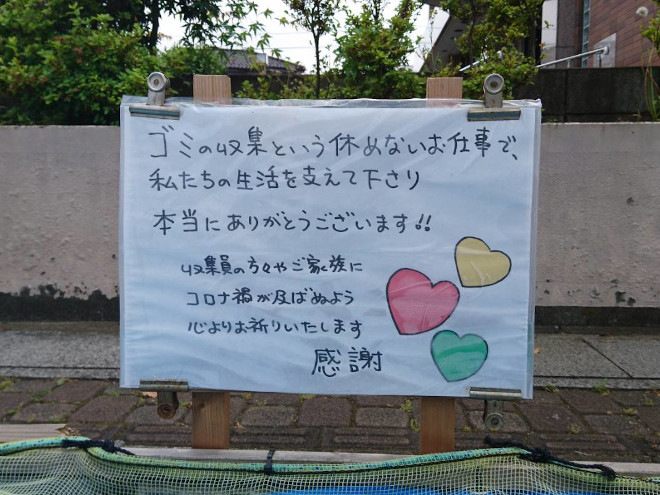 ゴミの収集という休めないお仕事で、
私たちの生活を支えて下さり
本当にありがとうございます!!
収集員の方々やご家族に
コロナ禍が及ばぬよう
心よりお祈りいたします
感謝